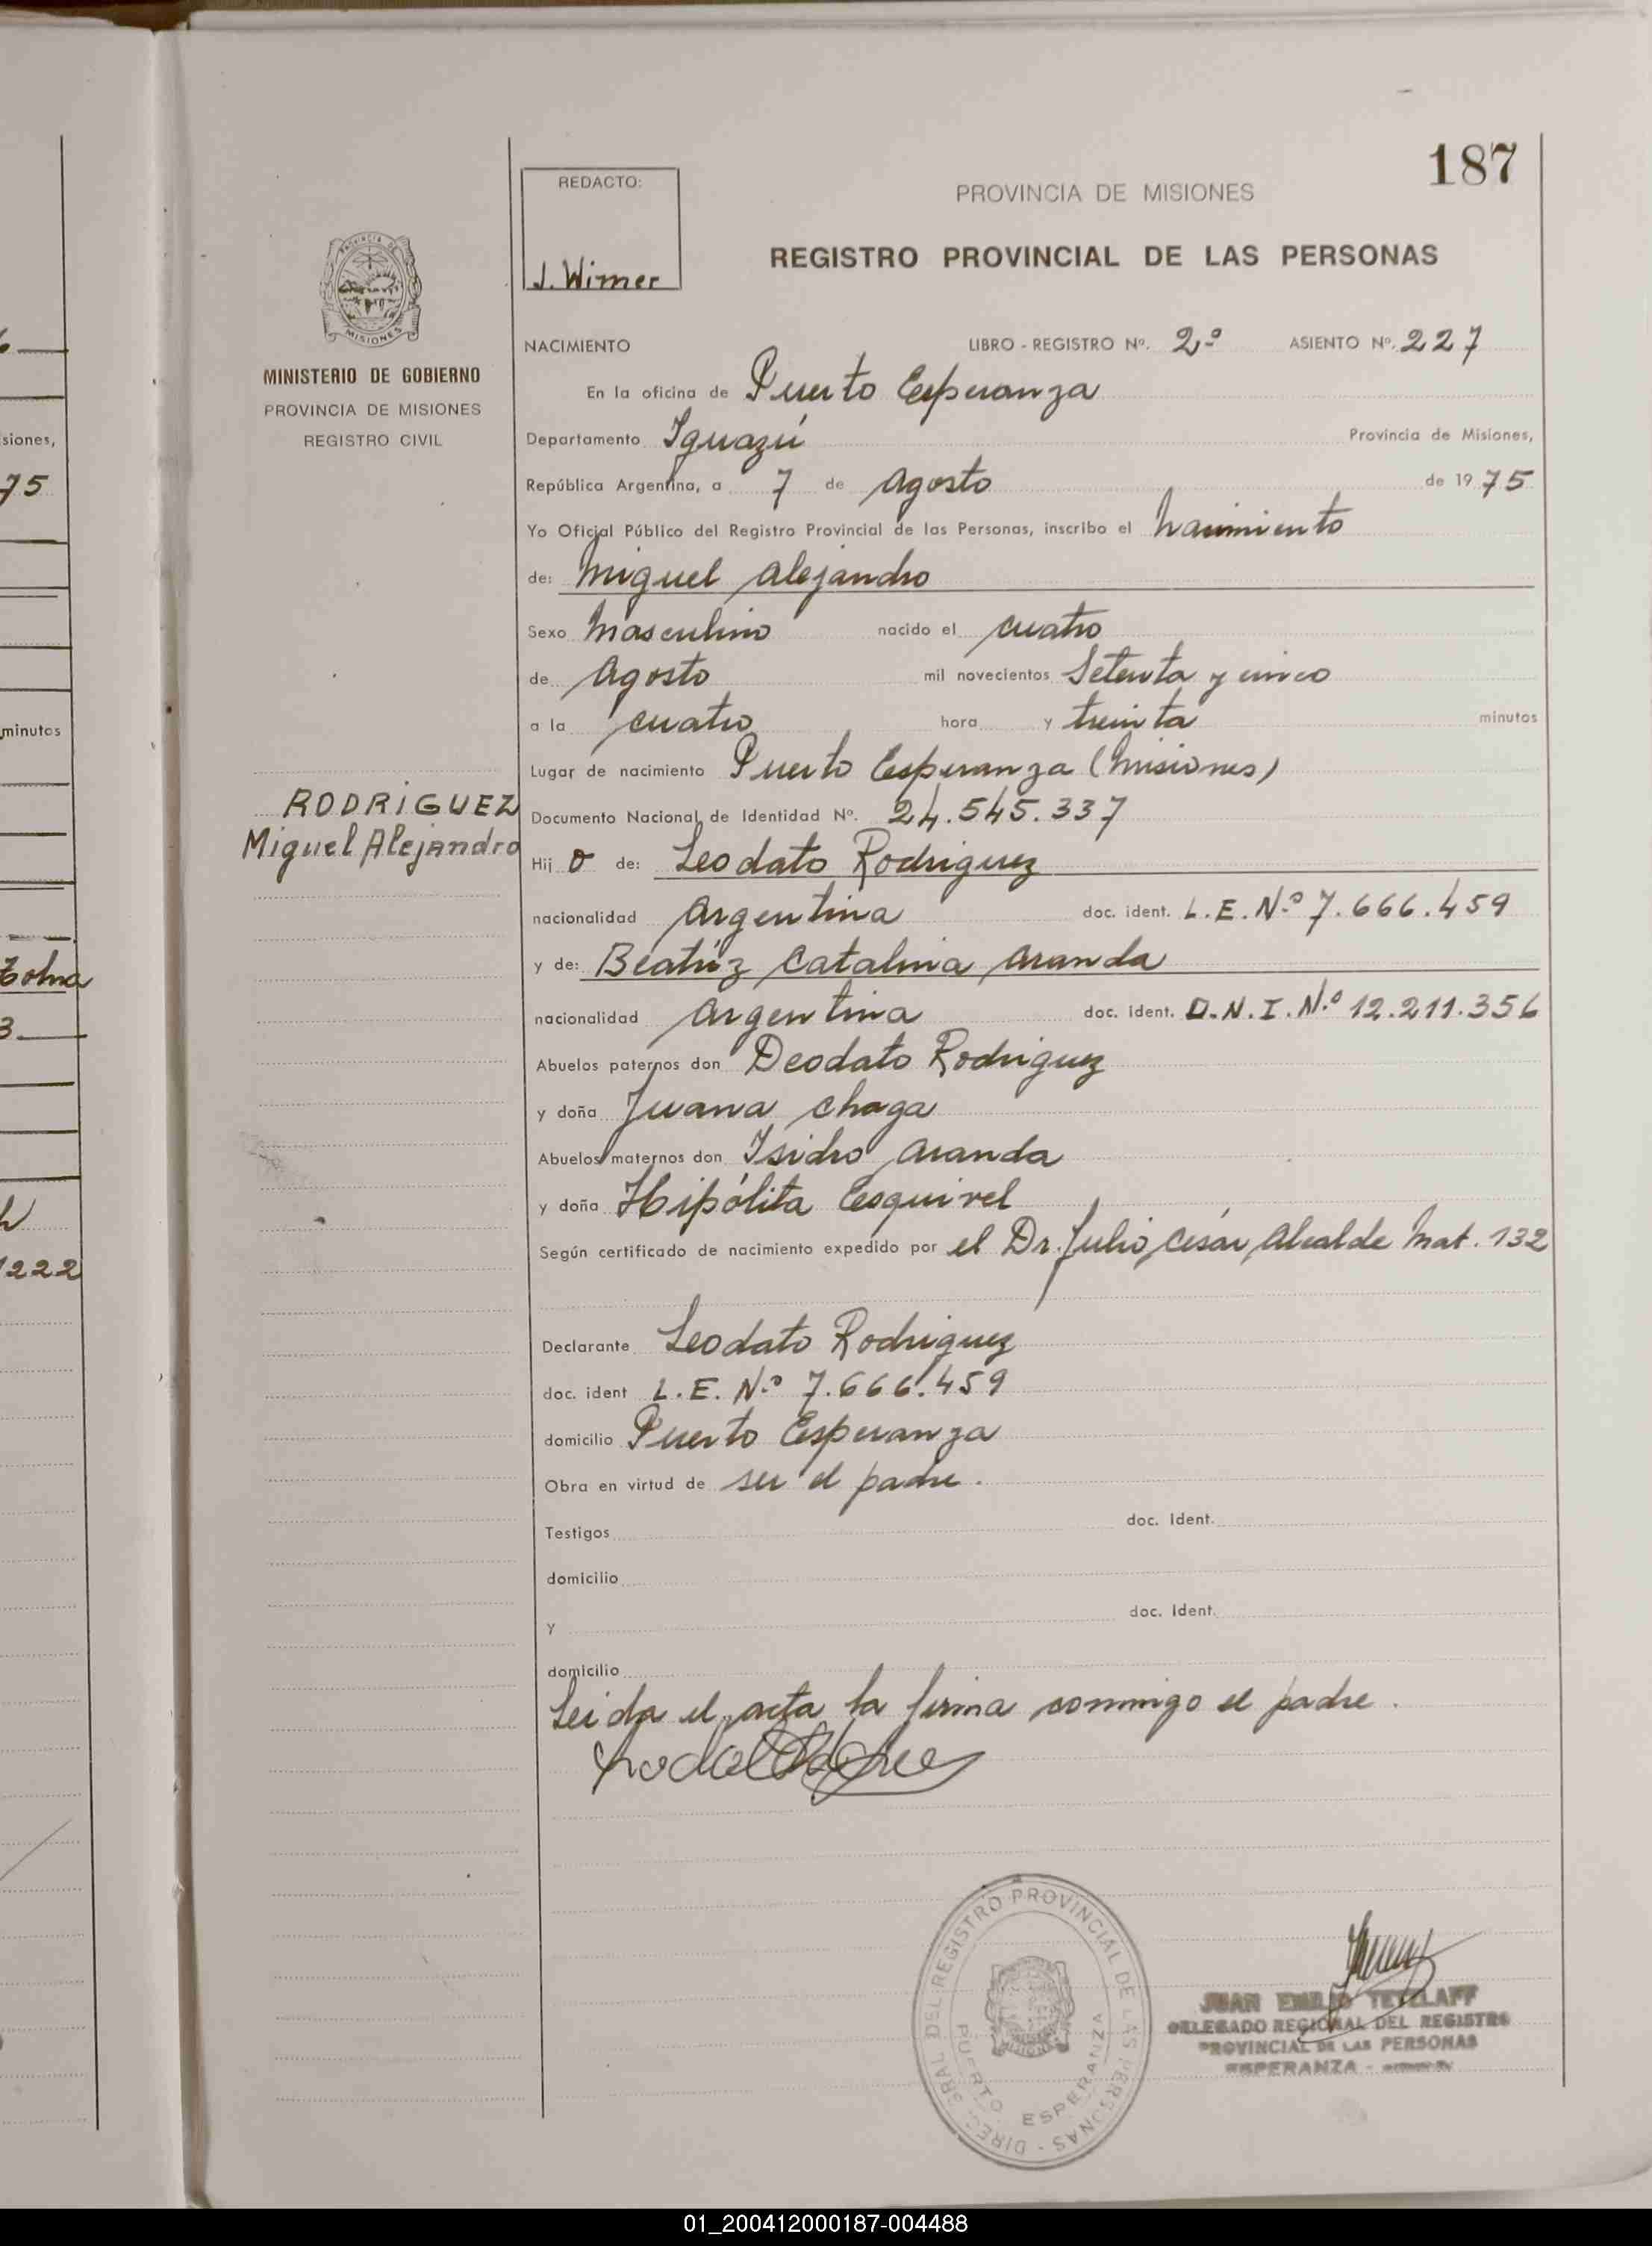 187
REDACTO:
J. Wimer
PROVINCIA DE MISIONES
REGISTRO PROVINCIAL DE LAS PERSONAS
PROVINCIA DE
MISIONES
MINISTERIO DE GOBIERNO
PROVINCIA DE MISIONES
REGISTRO CIVIL
NACIMIENTO LIBRO - REGISTRO Nº. 2º ASIENTO Nº. 227
En la oficina de Puerto Esperanza
Departamento Iguazú Provincia de Misiones,
República Argentina, a 7 de Agosto de 1975
Yo Oficial Público del Registro Provincial de las Personas, inscribo el Nacimiento
de: Miguel Alejandro
Sexo Masculino nacido el cuatro
de Agosto mil novecientos Setenta y cinco
a la cuatro hora y treinta minutos
Lugar de nacimiento Puerto Esperanza (Misiones)
RODRIGUEZ
Miguel Alejandro
Documento Nacional de Identidad Nº. 24.545.337
Hij o de: Leodato Rodriguez
nacionalidad Argentina doc. ident. L.E.Nº 7.666.459
y de: Beatríz Catalina Aranda
nacionalidad Argentina doc. ident. D.N.I.Nº 12.211.356
Abuelos paternos don Deodato Rodriguez
y doña Juana Chaga
Abuelos maternos don Isidro Aranda
y doña Hipólita Esquivel
Según certificado de nacimiento expedido por el Dr. Julio César Alcalde Mat. 132
Declarante Leodato Rodriguez
doc. ident L.E. Nº 7.666.459
domicilio Puerto Esperanza
Obra en virtud de ser el padre.
Testigos doc. Ident.
domicilio
y doc. Ident.
domicilio
Leida el acta la firma conmigo el padre.
DEL REGISTRO PROVINCIAL DE LAS PERSONAS
PUERTO ESPERANZA
JUAN EMILIO TETZLAFF
DELEGADO REGIONAL DEL REGISTRO
PROVINCIAL DE LAS PERSONAS
ESPERANZA
siones,
75
minutos
3
1222
01_200412000187-004488